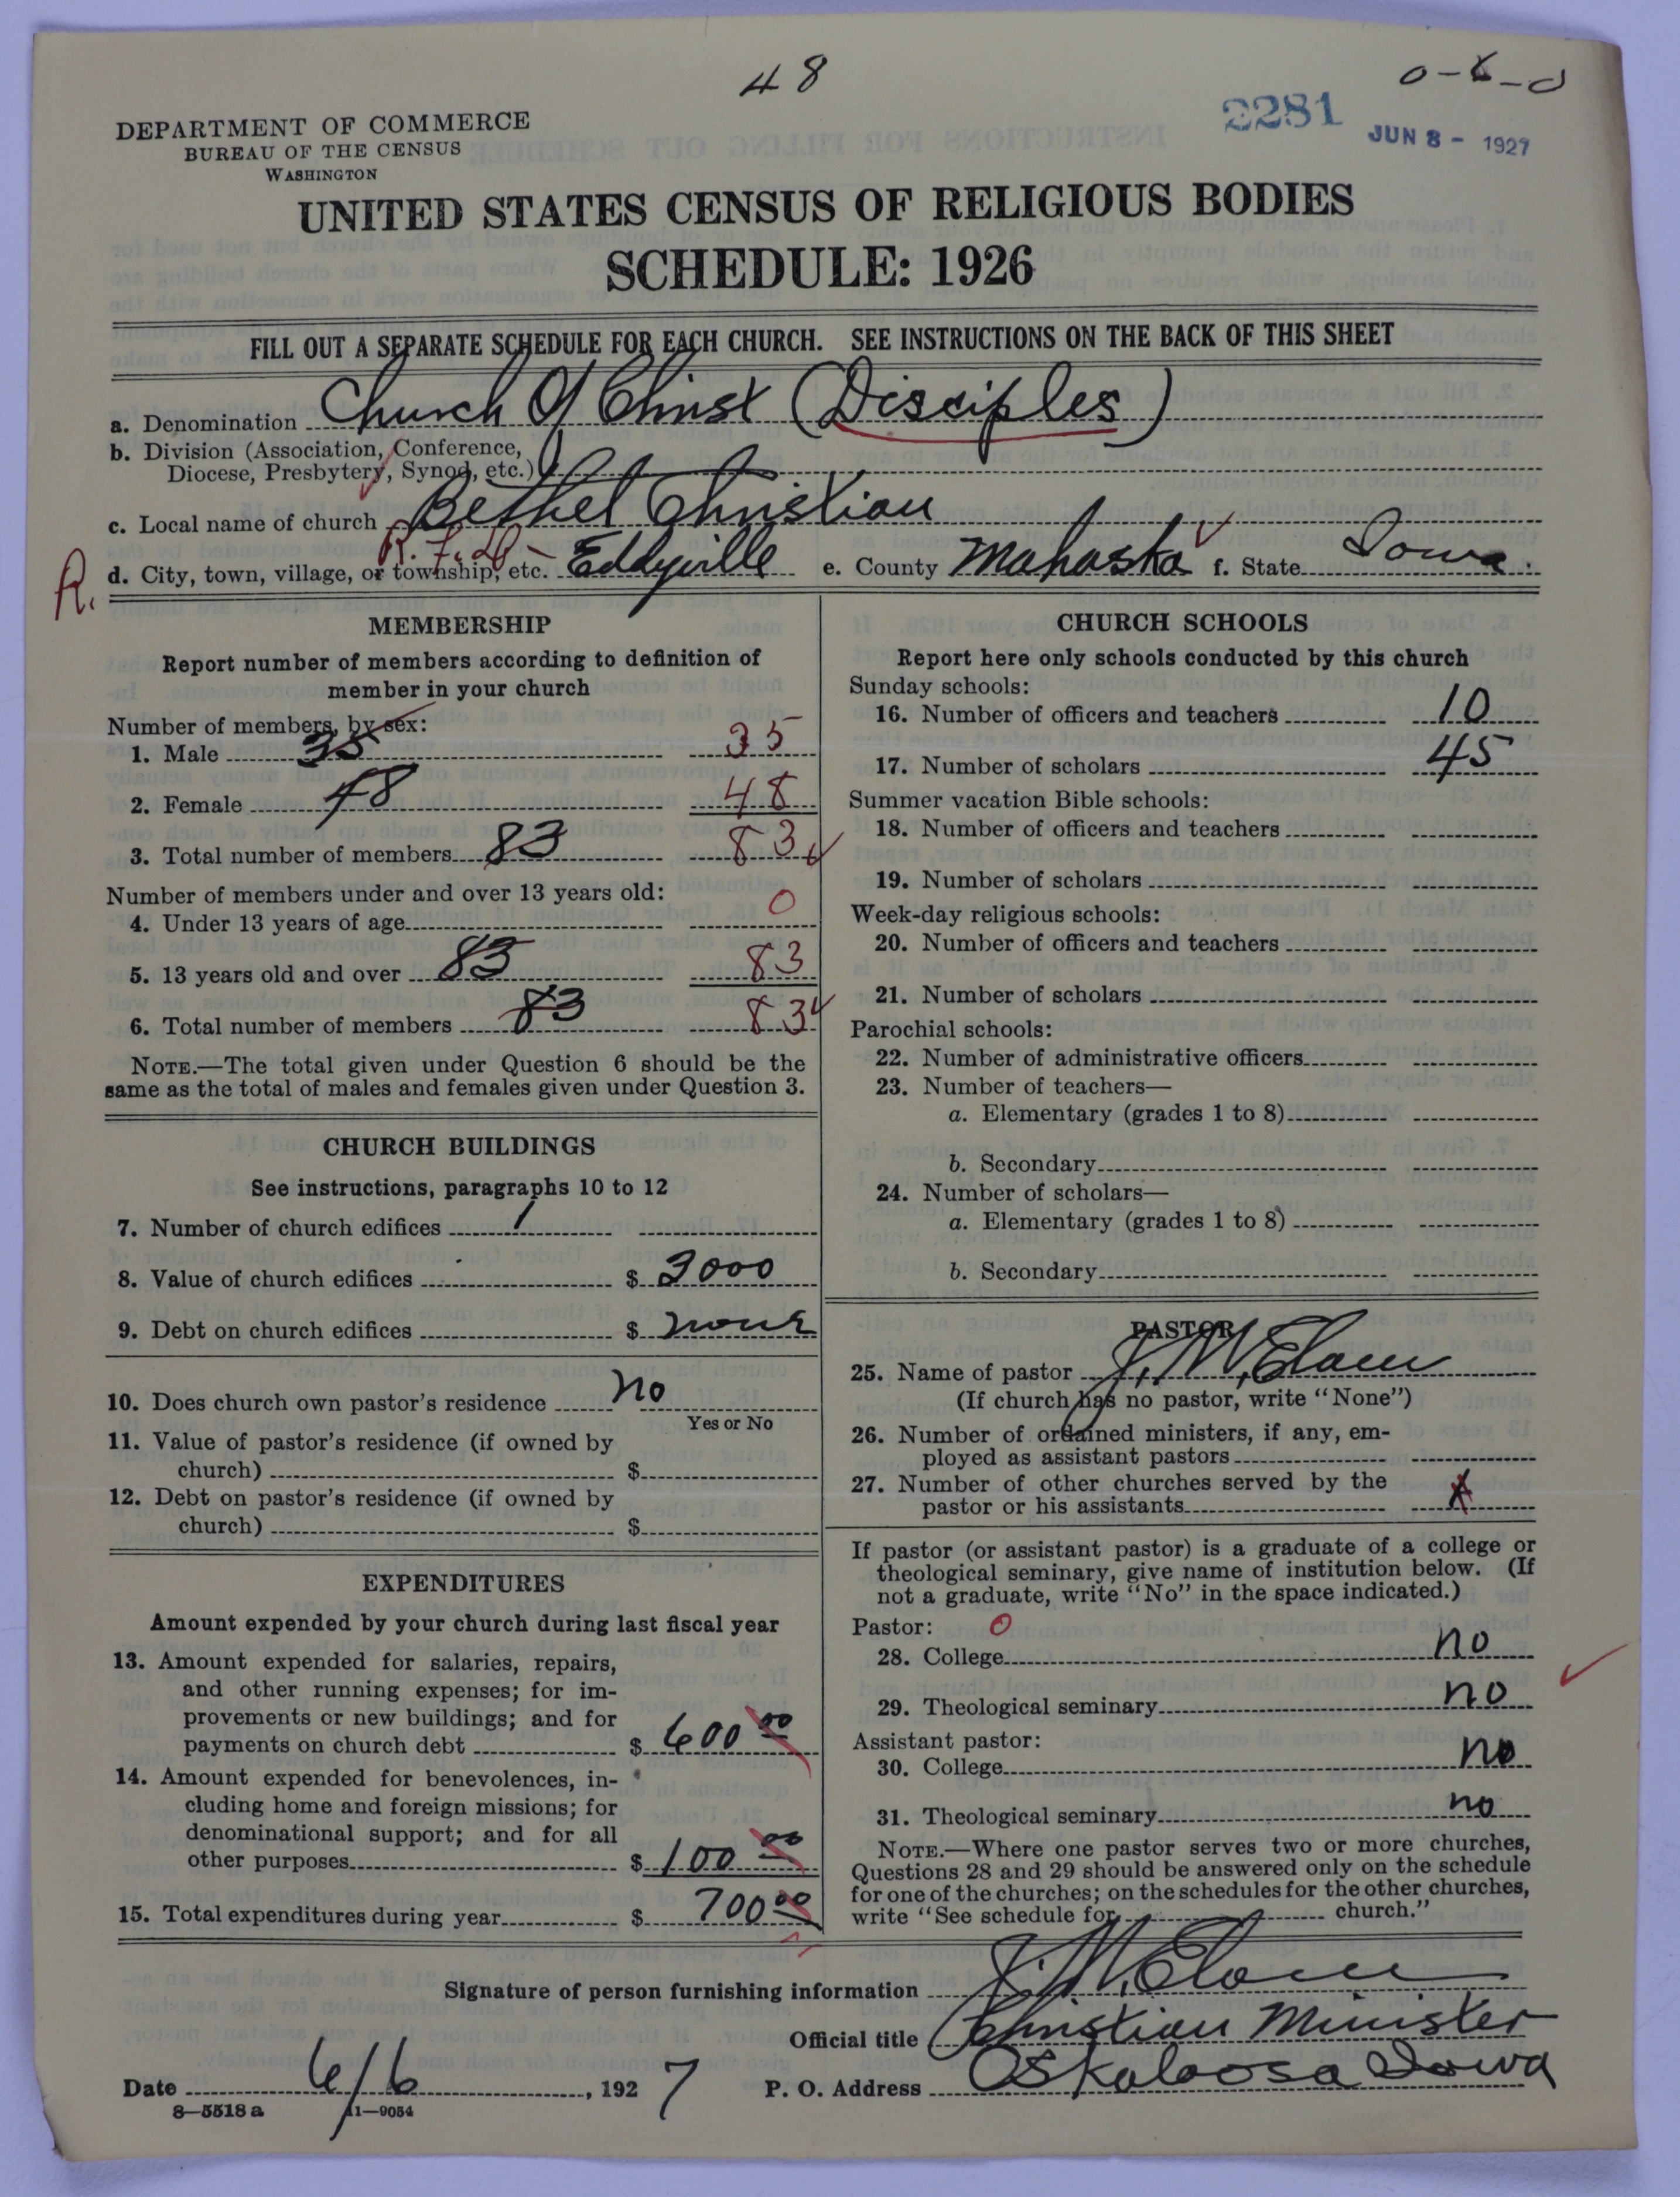 48
0-8-0
2281
JUN 8 - 1927
DEPARTMENT OF COMMERCE
BUREAU OF THE CENSUS
WASHINGTON
UNITED STATES CENSUS OF RELIGIOUS BODIES
SCHEDULE: 1926
FILL OUT A SEPARATE SCHEDULE FOR EACH CHURCH. SEE INSTRUCTIONS ON THE BACK OF THIS SHEET
a. Denomination Church Of Christ (Disciples)
b. Division (Association, Conference,
Diocese, Presbytery, Synod, etc.)
c. Local name of church Bethel Christian
R. d. City, town, village, or township, etc. R.F.D- Eddyville e. County Mahaska f. State Iowa.
MEMBERSHIP
Report number of members according to definition of
member in your church
Number of members, by sex:
1. Male 35 35
2. Female 48 48
3. Total number of members 83 83
Number of members under and over 13 years old:
4. Under 13 years of age 0
5. 13 years old and over 83 83
6. Total number of members 83 83
NOTE.—The total given under Question 6 should be the
same as the total of males and females given under Question 3.
CHURCH BUILDINGS
See instructions, paragraphs 10 to 12
7. Number of church edifices 1
8. Value of church edifices $ 3000
9. Debt on church edifices $ none
10. Does church own pastor's residence no
Yes or No
11. Value of pastor's residence (if owned by
church) $
12. Debt on pastor's residence (if owned by
church) $
EXPENDITURES
Amount expended by your church during last fiscal year
13. Amount expended for salaries, repairs,
and other running expenses; for im-
provements or new buildings; and for
payments on church debt $ 600 00
14. Amount expended for benevolences, in-
cluding home and foreign missions; for
denominational support; and for all
other purposes $ 100 00
15. Total expenditures during year $ 700 00
CHURCH SCHOOLS
Report here only schools conducted by this church
Sunday schools:
16. Number of officers and teachers 10
17. Number of scholars 45
Summer vacation Bible schools:
18. Number of officers and teachers
19. Number of scholars
Week-day religious schools:
20. Number of officers and teachers
21. Number of scholars
Parochial schools:
22. Number of administrative officers
23. Number of teachers—
a. Elementary (grades 1 to 8)
b. Secondary
24. Number of scholars—
a. Elementary (grades 1 to 8)
b. Secondary
PASTOR
25. Name of pastor J. W. Elam
(If church has no pastor, write "None")
26. Number of ordained ministers, if any, em-
ployed as assistant pastors
27. Number of other churches served by the
pastor or his assistants
If pastor (or assistant pastor) is a graduate of a college or
theological seminary, give name of institution below. (If
not a graduate, write "No" in the space indicated.)
Pastor: 0
28. College no
29. Theological seminary no
Assistant pastor:
30. College no
31. Theological seminary no
NOTE.—Where one pastor serves two or more churches,
Questions 28 and 29 should be answered only on the schedule
for one of the churches; on the schedules for the other churches,
write "See schedule for church."
Signature of person furnishing information J. W. Elam
Official title Christian Minister
Date 6/6, 1927 P. O. Address Oskaloosa Iowa
8—5518 a 11—9054